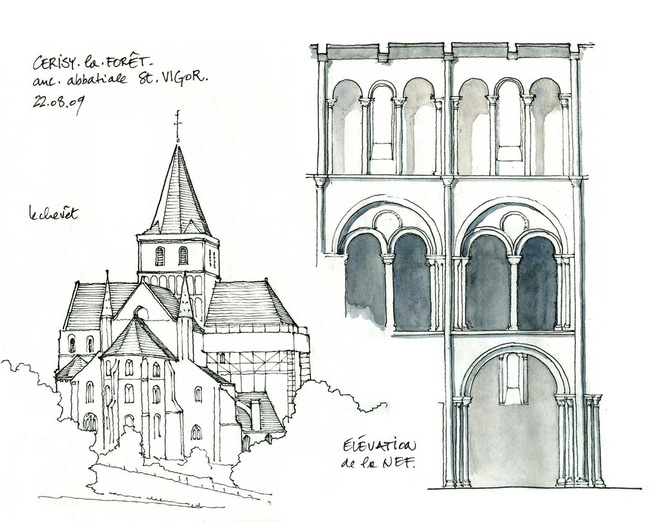 CERISY.la.FORÊT-
anc. abbatiale St. VIGOR.
22.08.09
le chevêt
ELÉVATION
de la NEF.